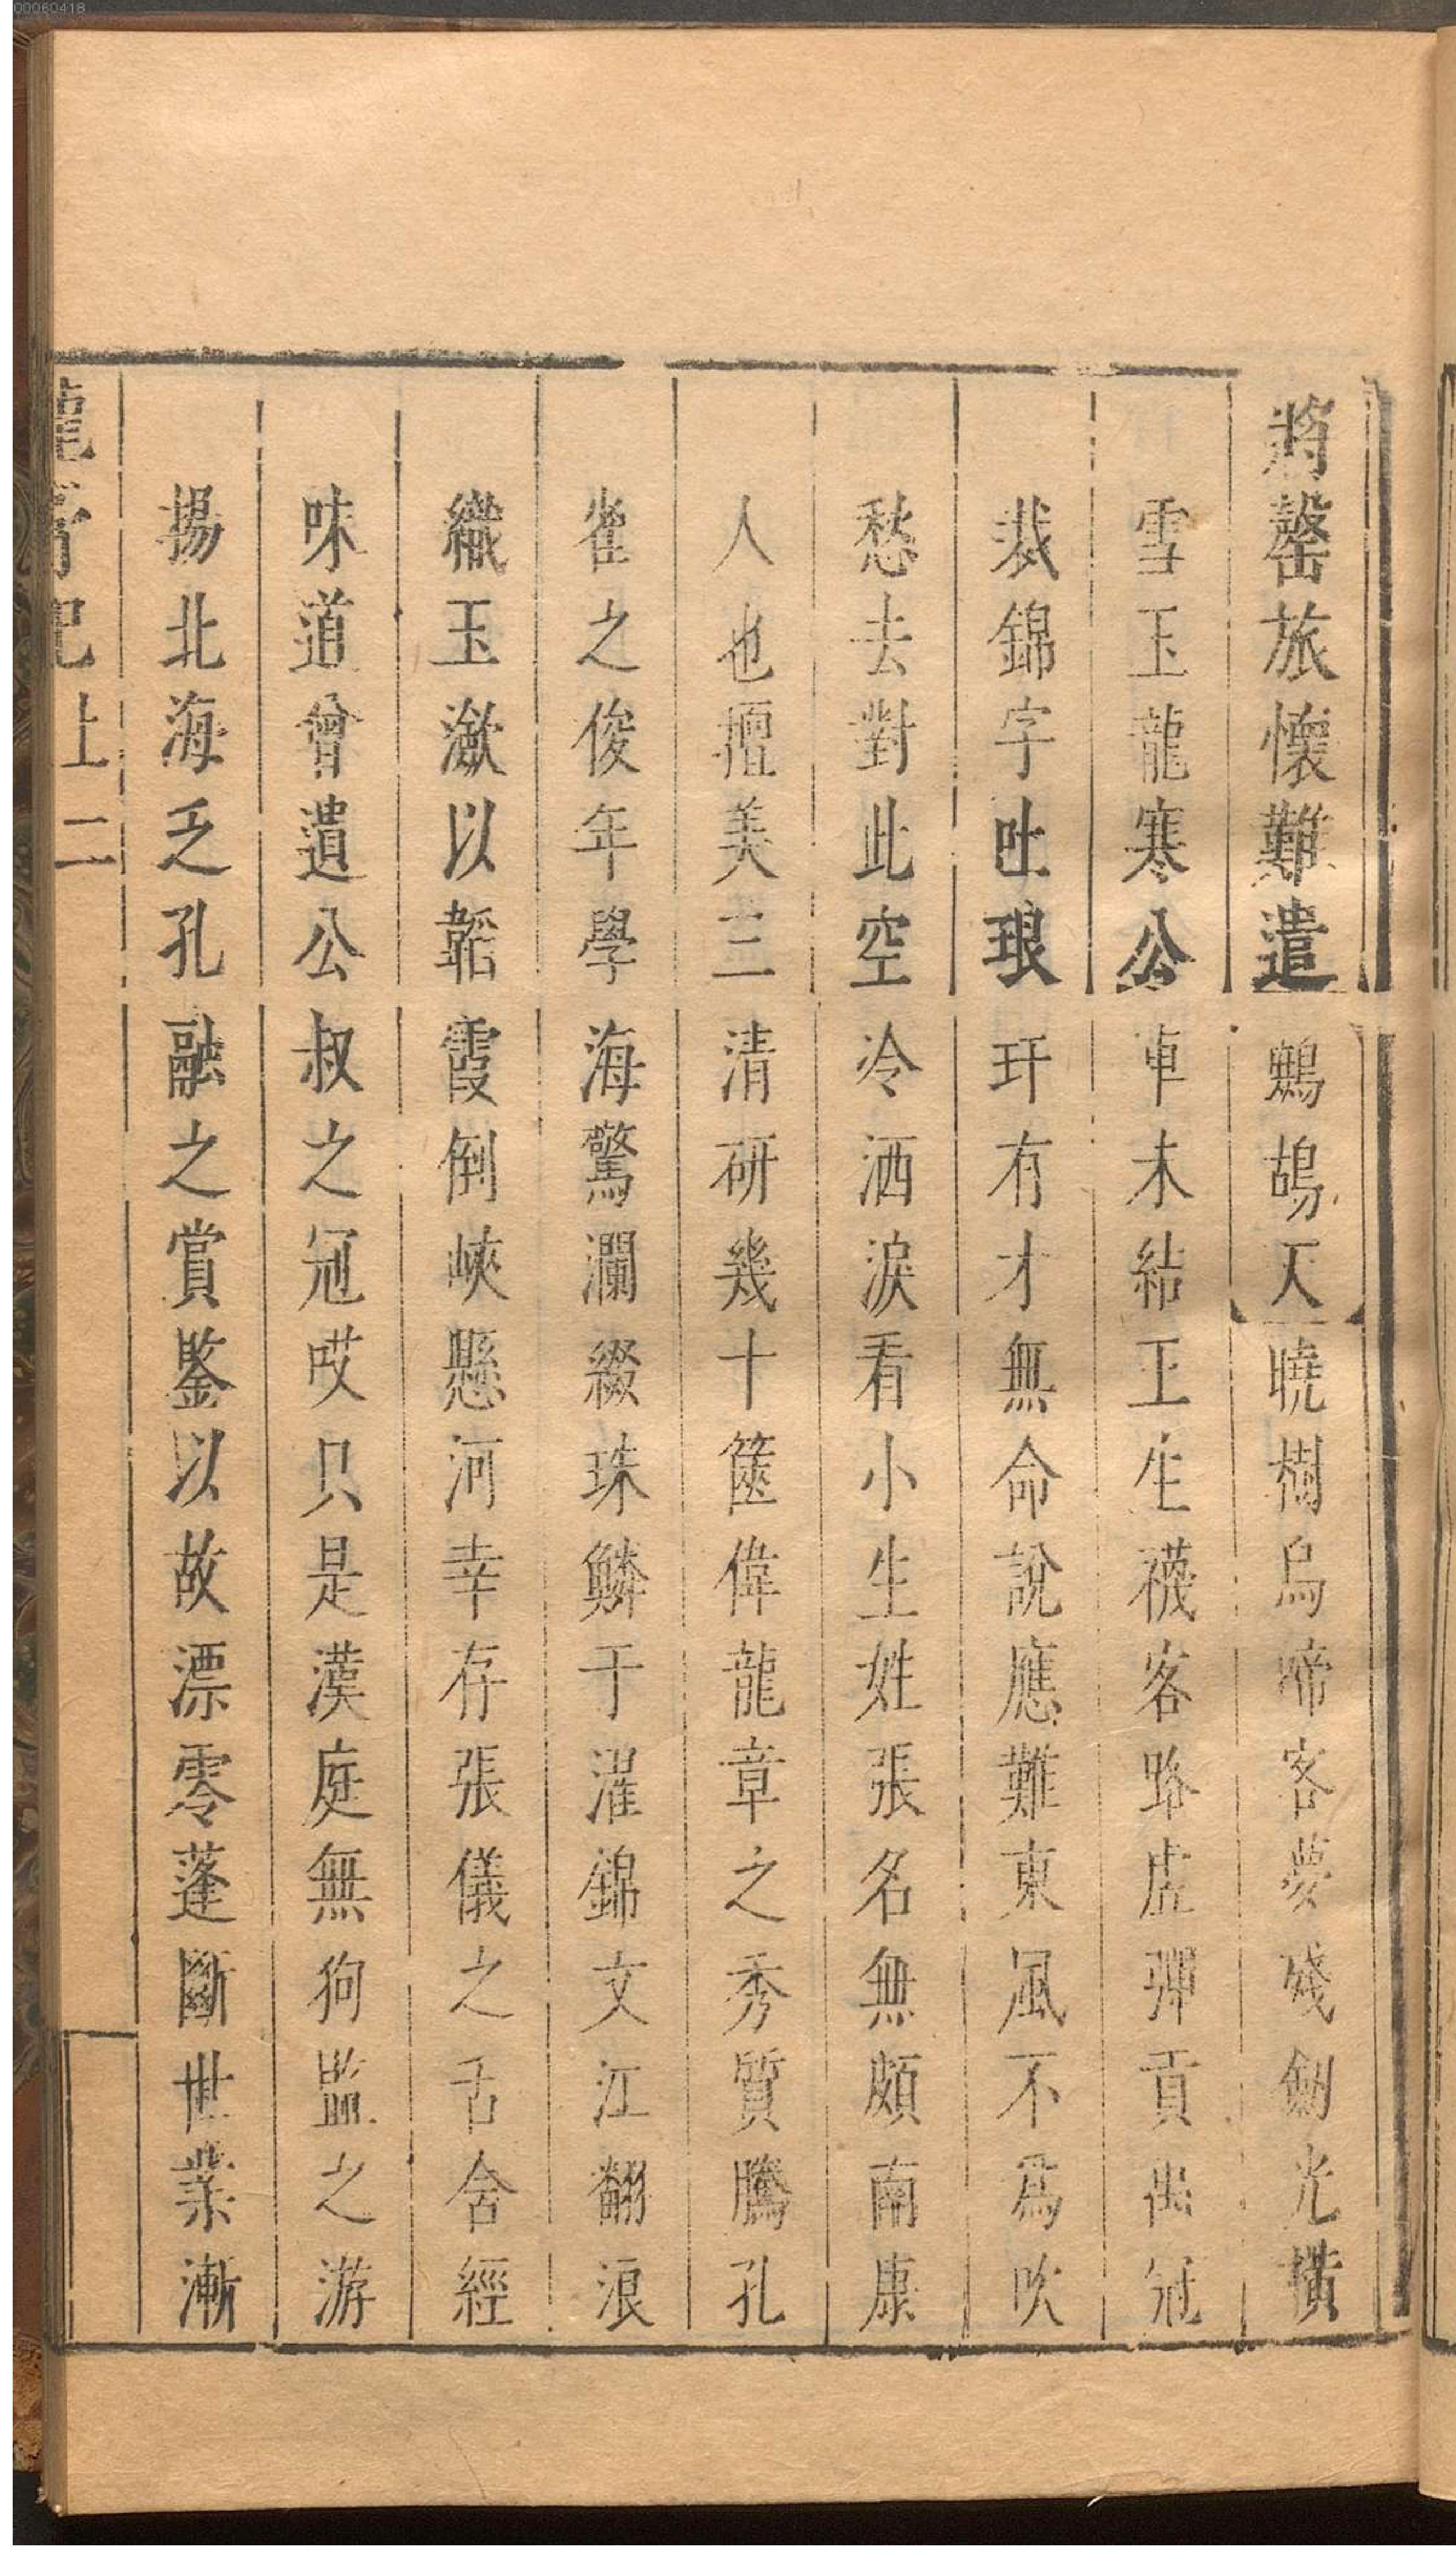 將罄旅懷難遣鷓鴣天曉樹烏啼客夢殘劒光摸
雪玉龍寒公車未結王生襪客路虛彈貢禹冠
裁錦字吐琅玕有才無命說應難東風不爲吹
愁去對此空冷洒淚看小生姓張名無頗南康
人也擅美三清研幾十篋偉龍章之秀質騰孔
雀之俊年學海驚瀾綴珠鱗于濯錦文江翻浪
織玉瀲以韜霞倒峽懸河幸存張儀之舌含經
味道曾遺公叔之冠哎只是漢庭無狗監之游
揚北海乏孔融之賞鑒以故漂零蓬斷世業漸
龍膏記 上 二
00060418